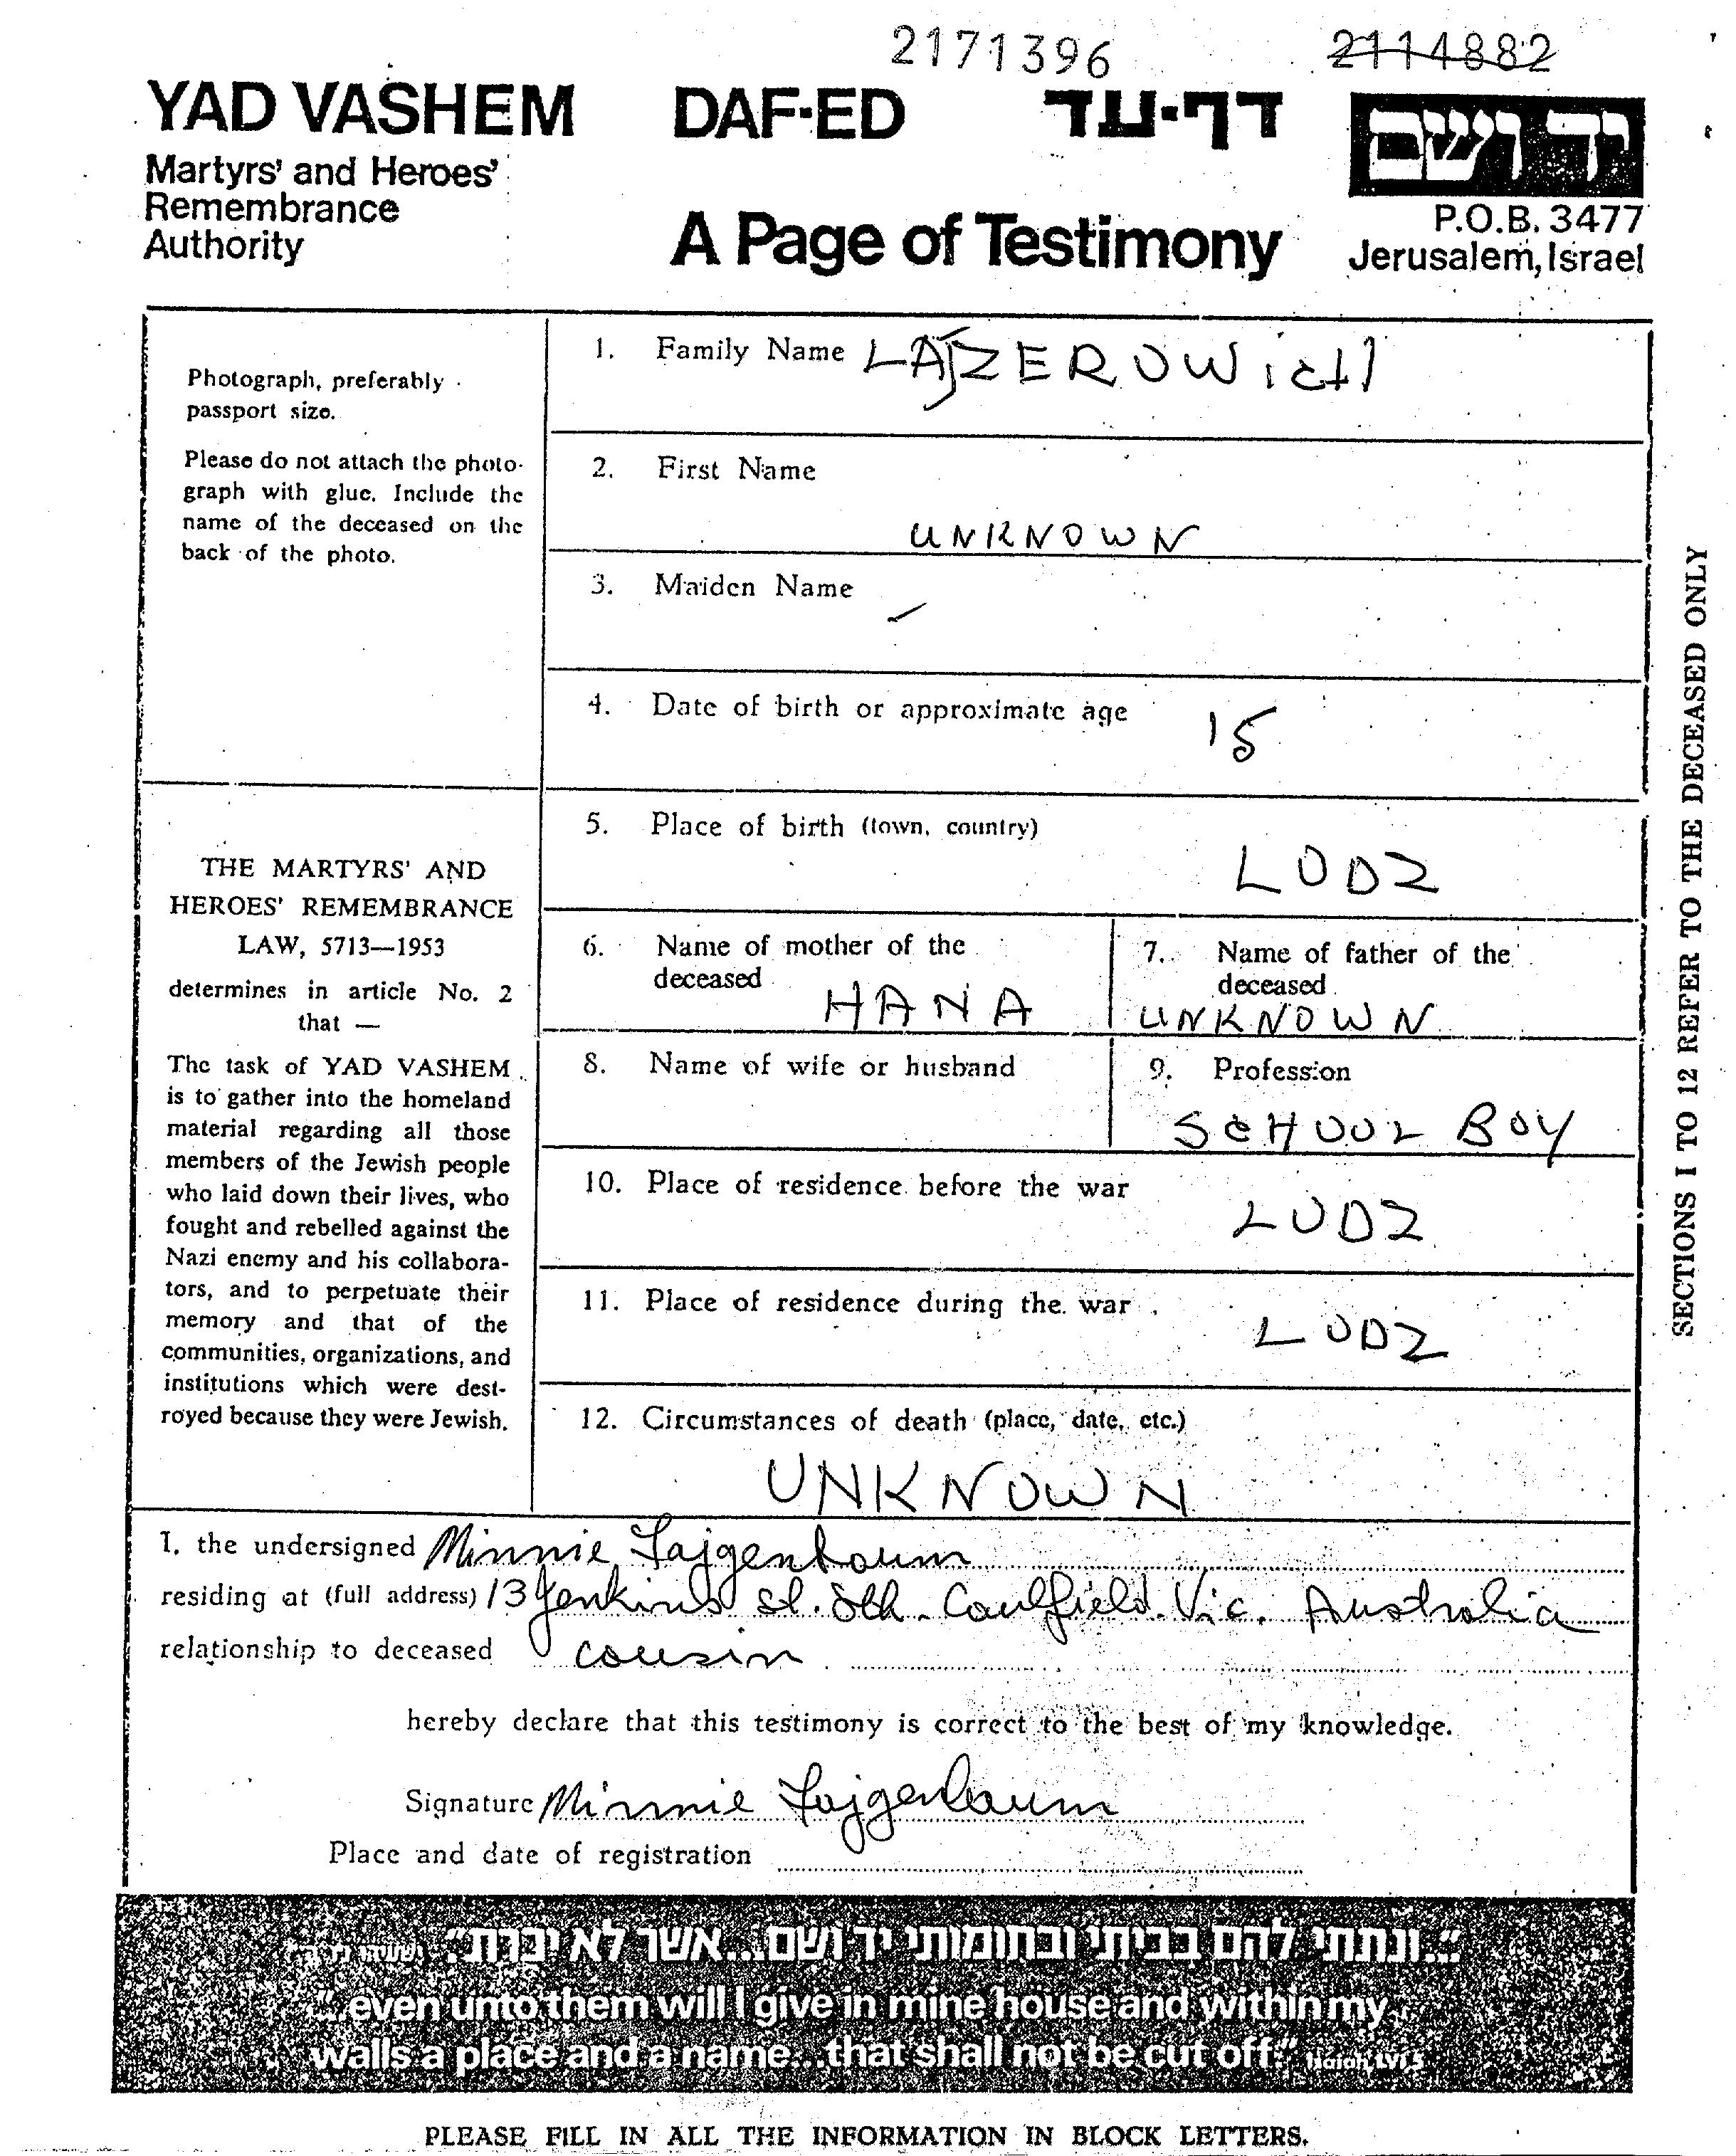 2171396 2114882
YAD VASHEM DAF-ED דף-עד יד ושם
Martyrs' and Heroes'
Remembrance
Authority
A Page of Testimony
P.O.B. 3477
Jerusalem, Israel
Photograph, preferably
passport size.
Please do not attach the photo-
graph with glue. Include the
name of the deceased on the
back of the photo.
THE MARTYRS' AND
HEROES' REMEMBRANCE
LAW, 5713—1953
determines in article No. 2
that —
The task of YAD VASHEM
is to gather into the homeland
material regarding all those
members of the Jewish people
who laid down their lives, who
fought and rebelled against the
Nazi enemy and his collabora-
tors, and to perpetuate their
memory and that of the
communities, organizations, and
institutions which were dest-
royed because they were Jewish.
1. Family Name LAJZEROWICH
2. First Name
UNKNOWN
3. Maiden Name
4. Date of birth or approximate age 15
5. Place of birth (town, country)
LODZ
6. Name of mother of the
deceased HANA
7. Name of father of the
deceased
UNKNOWN
8. Name of wife or husband
9. Profession
SCHOOL BOY
10. Place of residence before the war
LODZ
11. Place of residence during the war
LODZ
12. Circumstances of death (place, date, etc.)
UNKNOWN
SECTIONS 1 TO 12 REFER TO THE DECEASED ONLY
I, the undersigned Minnie Fajgenbaum
residing at (full address) 13 Jenkins St. Sth. Caulfield. Vic. Australia
relationship to deceased cousin
hereby declare that this testimony is correct to the best of my knowledge.
Signature Minnie Fajgenbaum
Place and date of registration
"...ונתתי להם בביתי ובחומותי יד ושם...אשר לא יכרת" ישעיהו נ"ו ה'
"...even unto them will I give in mine house and within my
walls a place and a name...that shall not be cut off." Isaiah, LVI,5
PLEASE FILL IN ALL THE INFORMATION IN BLOCK LETTERS.